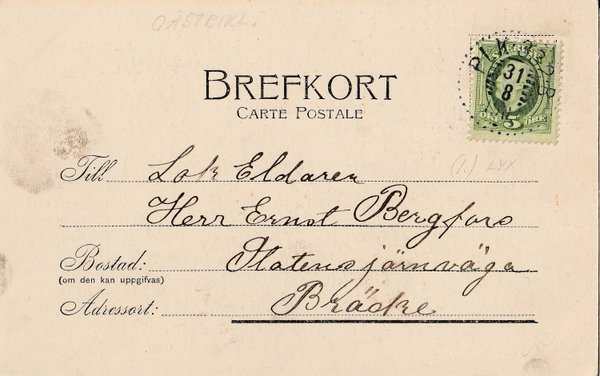 GÄSTRIKL.
PLK 333 B
31
8
SVERIGE
5
ÖRE
BREFKORT
CARTE POSTALE
(1.) LXX
Till Lok Eldaren
Herr Ernst Bergfors
Bostad: Statens järnväga
(om den kan uppgifvas)
Adressort: Bräcke